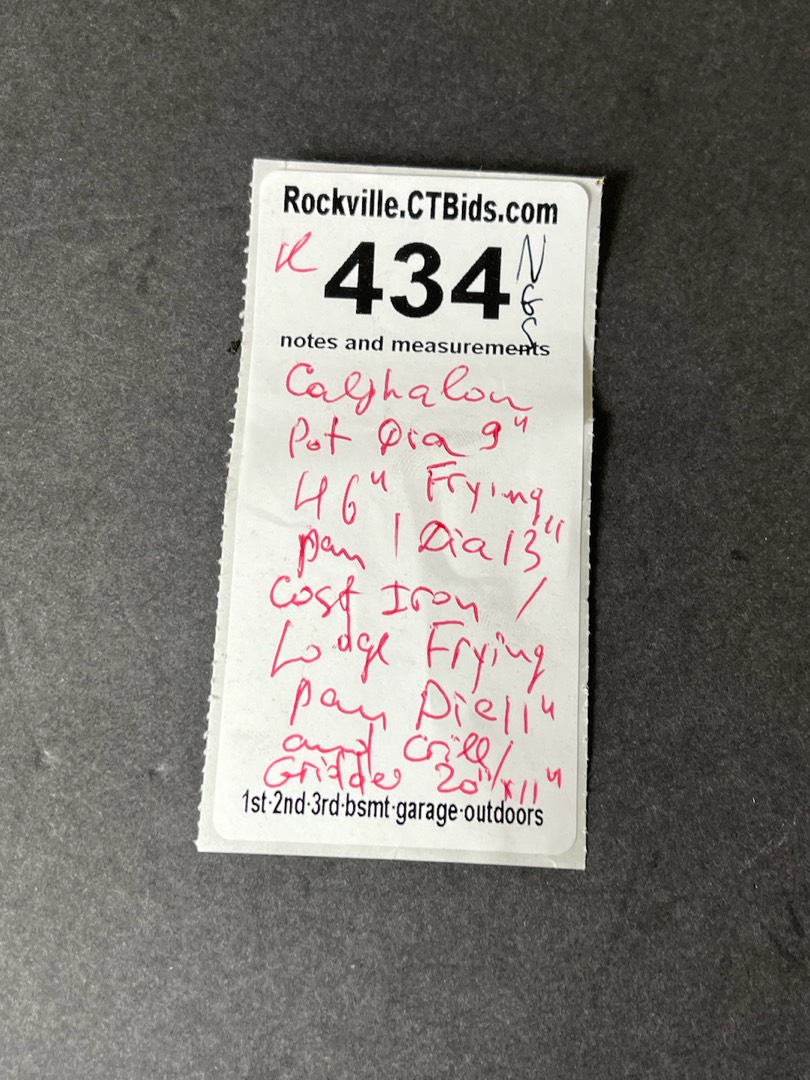 Rockville.CTBids.com
K 434 NGS
notes and measurements
Calphalon
Pot Dia 9"
H6" Frying
pan | Dia 13"
Cost Iron /
Lodge Frying
pan Die 11"
and Grill/
Gridder 20"x11"
1st·2nd·3rd·bsmt·garage·outdoors